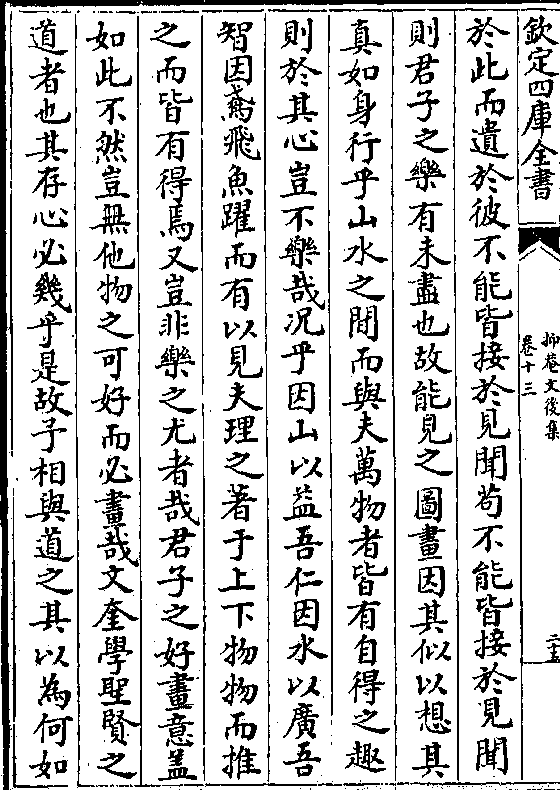 欽定四庫全書
抑菴文後集
卷十三
二十五
於此而遺於彼不能皆接於見聞茍不能皆接於見聞
則君子之樂有未盡也故能見之圖畫因其似以想其
真如身行乎山水之間而與夫萬物者皆有自得之趣
則於其心豈不樂哉况乎因山以益吾仁因水以廣吾
智因鳶飛魚躍而有以見夫理之著于上下物物而推
之而皆有得焉又豈非樂之尤者哉君子之好畫意盖
如此不然豈無他物之可好而必畫哉文奎學聖賢之
道者也其存心必幾乎是故予相與道之其以為何如